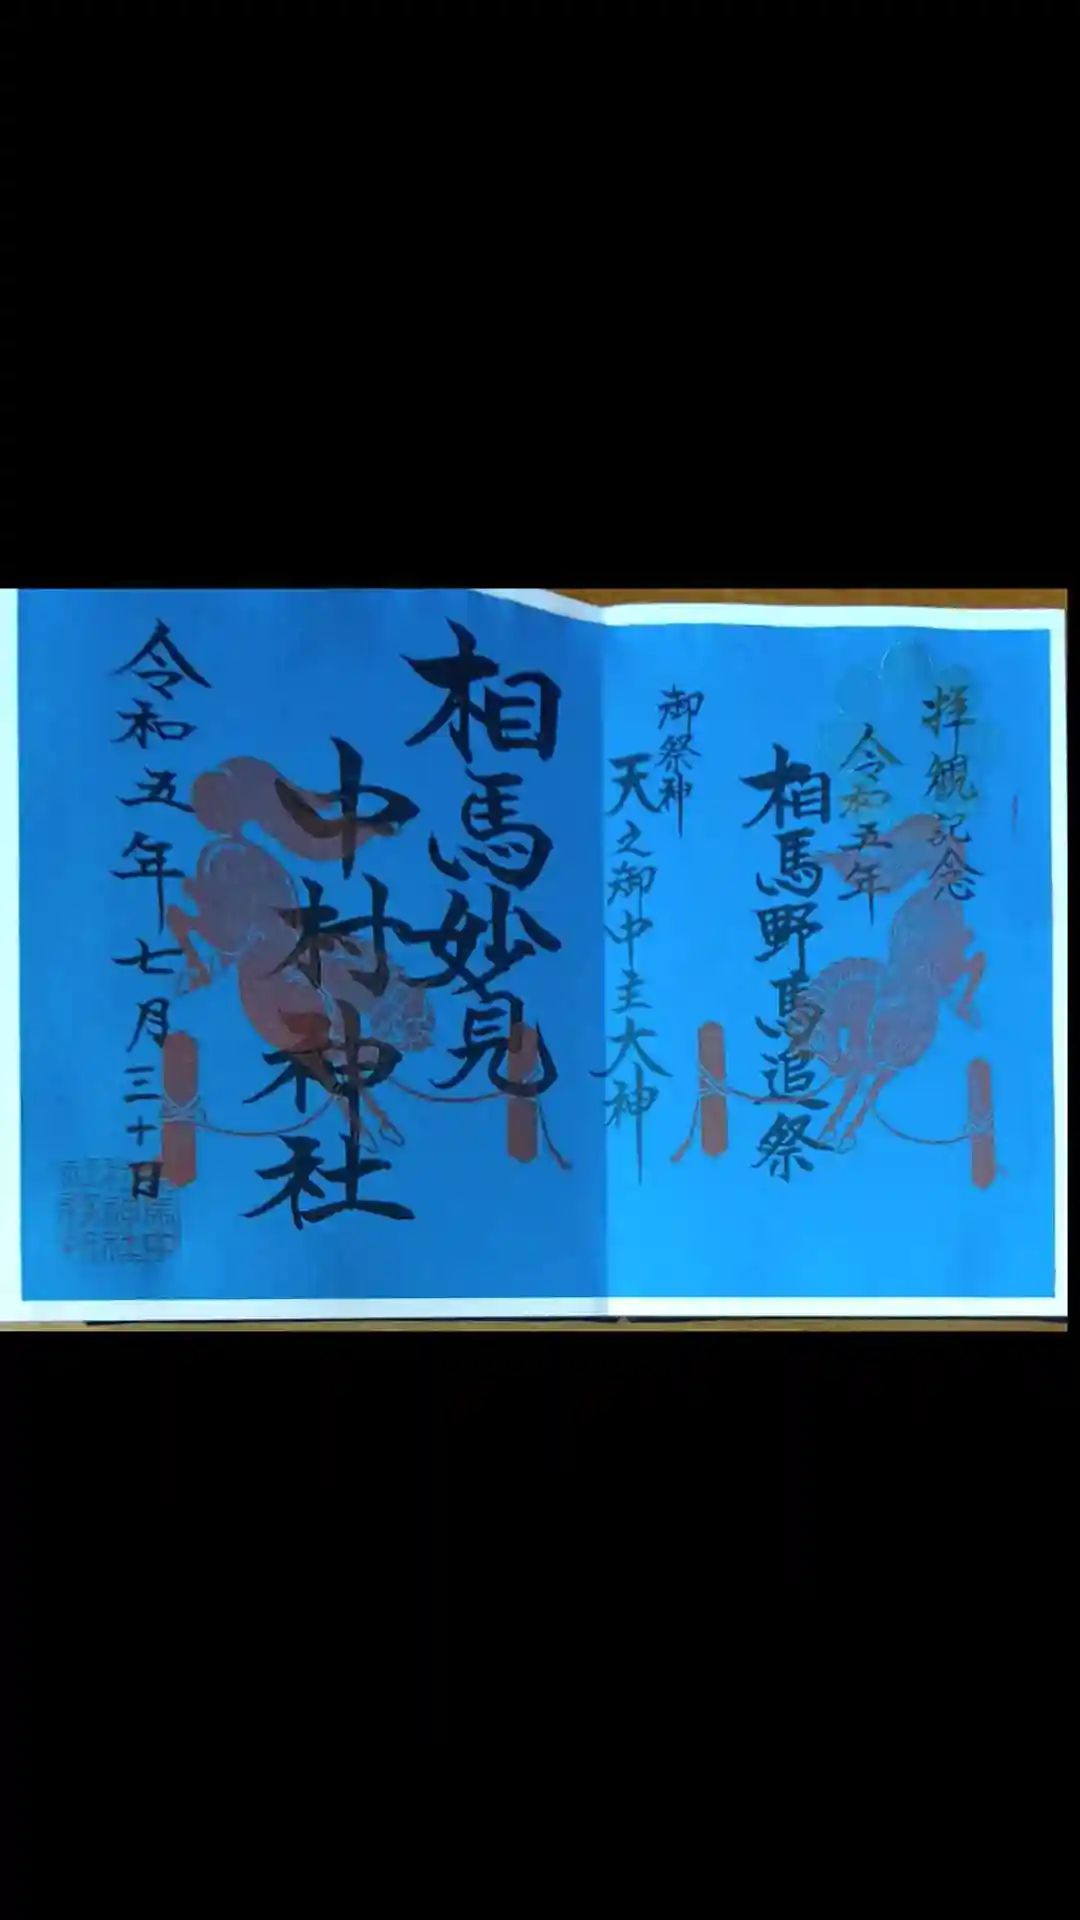 拝観記念
令和五年
相馬野馬追祭
御祭神
天之御中主大神
相馬妙見
中村神社
令和五年七月三十日